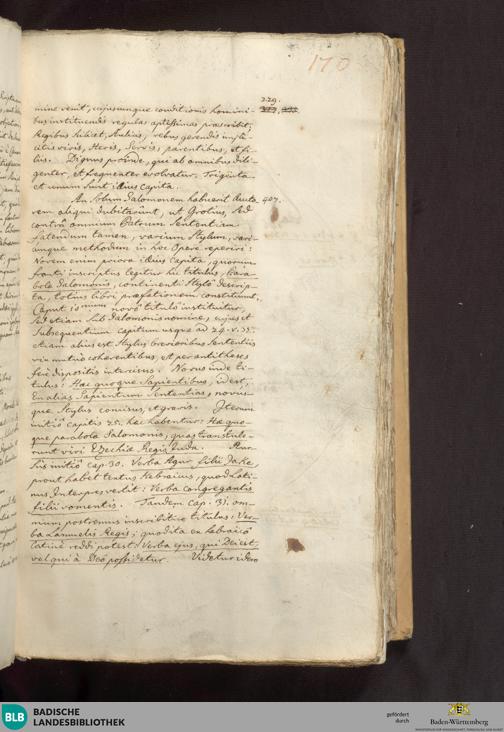 170
229.
mine venit, cujuscunque conditionis homini-
bus instituendis regulas aptissimas præscribit,
Regibus scilicet, Aulicis, rebus gerendis implí-
citis viris, Heris, Servis, parentibus, et fi-
liis. Dignus proinde, qui ab omnibus dili-
genter, et frequenter evolvatur. Triginta
et unum sunt illius capita.
An solum Salomonem habuerit Aucto- 407.
rem aliqui dubitarunt, ut Grotius, sed
contra omnium Patrum Sententiam.
fatendum tamen, varium Stylum, vari-
amque methodum in hoc Opere reperiri:
Novem enim priora illius Capita, quorum
fronti inscriptus legitur hic titulus, Para-
bolæ Salomonis, continenti Stylo descrip-
ta, totius libri præfationem constituunt.
Caput 10mum novo titulo instituitur,
sed etiam sub Salomonis nomine, cujus et
Subsequentium capitum usque ad 24. v.
etiam alius est Stylus brevioribus Sententiis
vix mutuo cohærentibus, et per antitheses
fere dispositis intercisus. Novus inde ti-
tulus: Hæc quoque Sapientibus, id est,
En alias Sapientum Sententias, novus-
que Stylus concisus, et gravis. Iterum
initio capitis 25. hæc habentur: Hæ quo-
que parabolæ Salomonis, quas transtule-
runt viri Ezechiæ Regis Juda. Rur-
sus initio cap. 30. Verba Agur filii Jake,
prout habet textus Hebraicus, quod Lati-
nus Interpres vertit: Verba congregantis
filii vomentis. Tandem cap. 31. om-
nium postremus inscribitur titulus: Ver-
ba Lamuelis Regis; quod ita ex hebraico
Latine reddi potest: Verba ejus, qui Dei est,
vel qui à Deo possidetur. Videtur ideo
BLB BADISCHE
LANDESBIBLIOTHEK
gefördert
durch
Baden-Württemberg